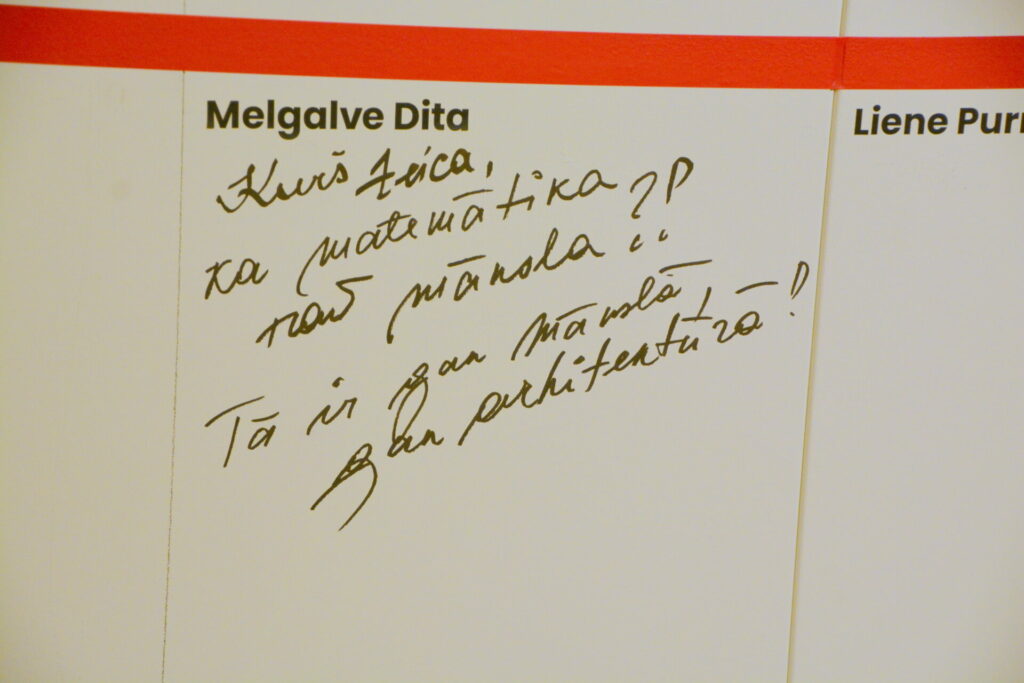 Melgalve Dita
Liene Purr
Kurš teica,
ka matemātika
nav māksla??
Tā ir gan mākslā,
gan arhitektūrā!